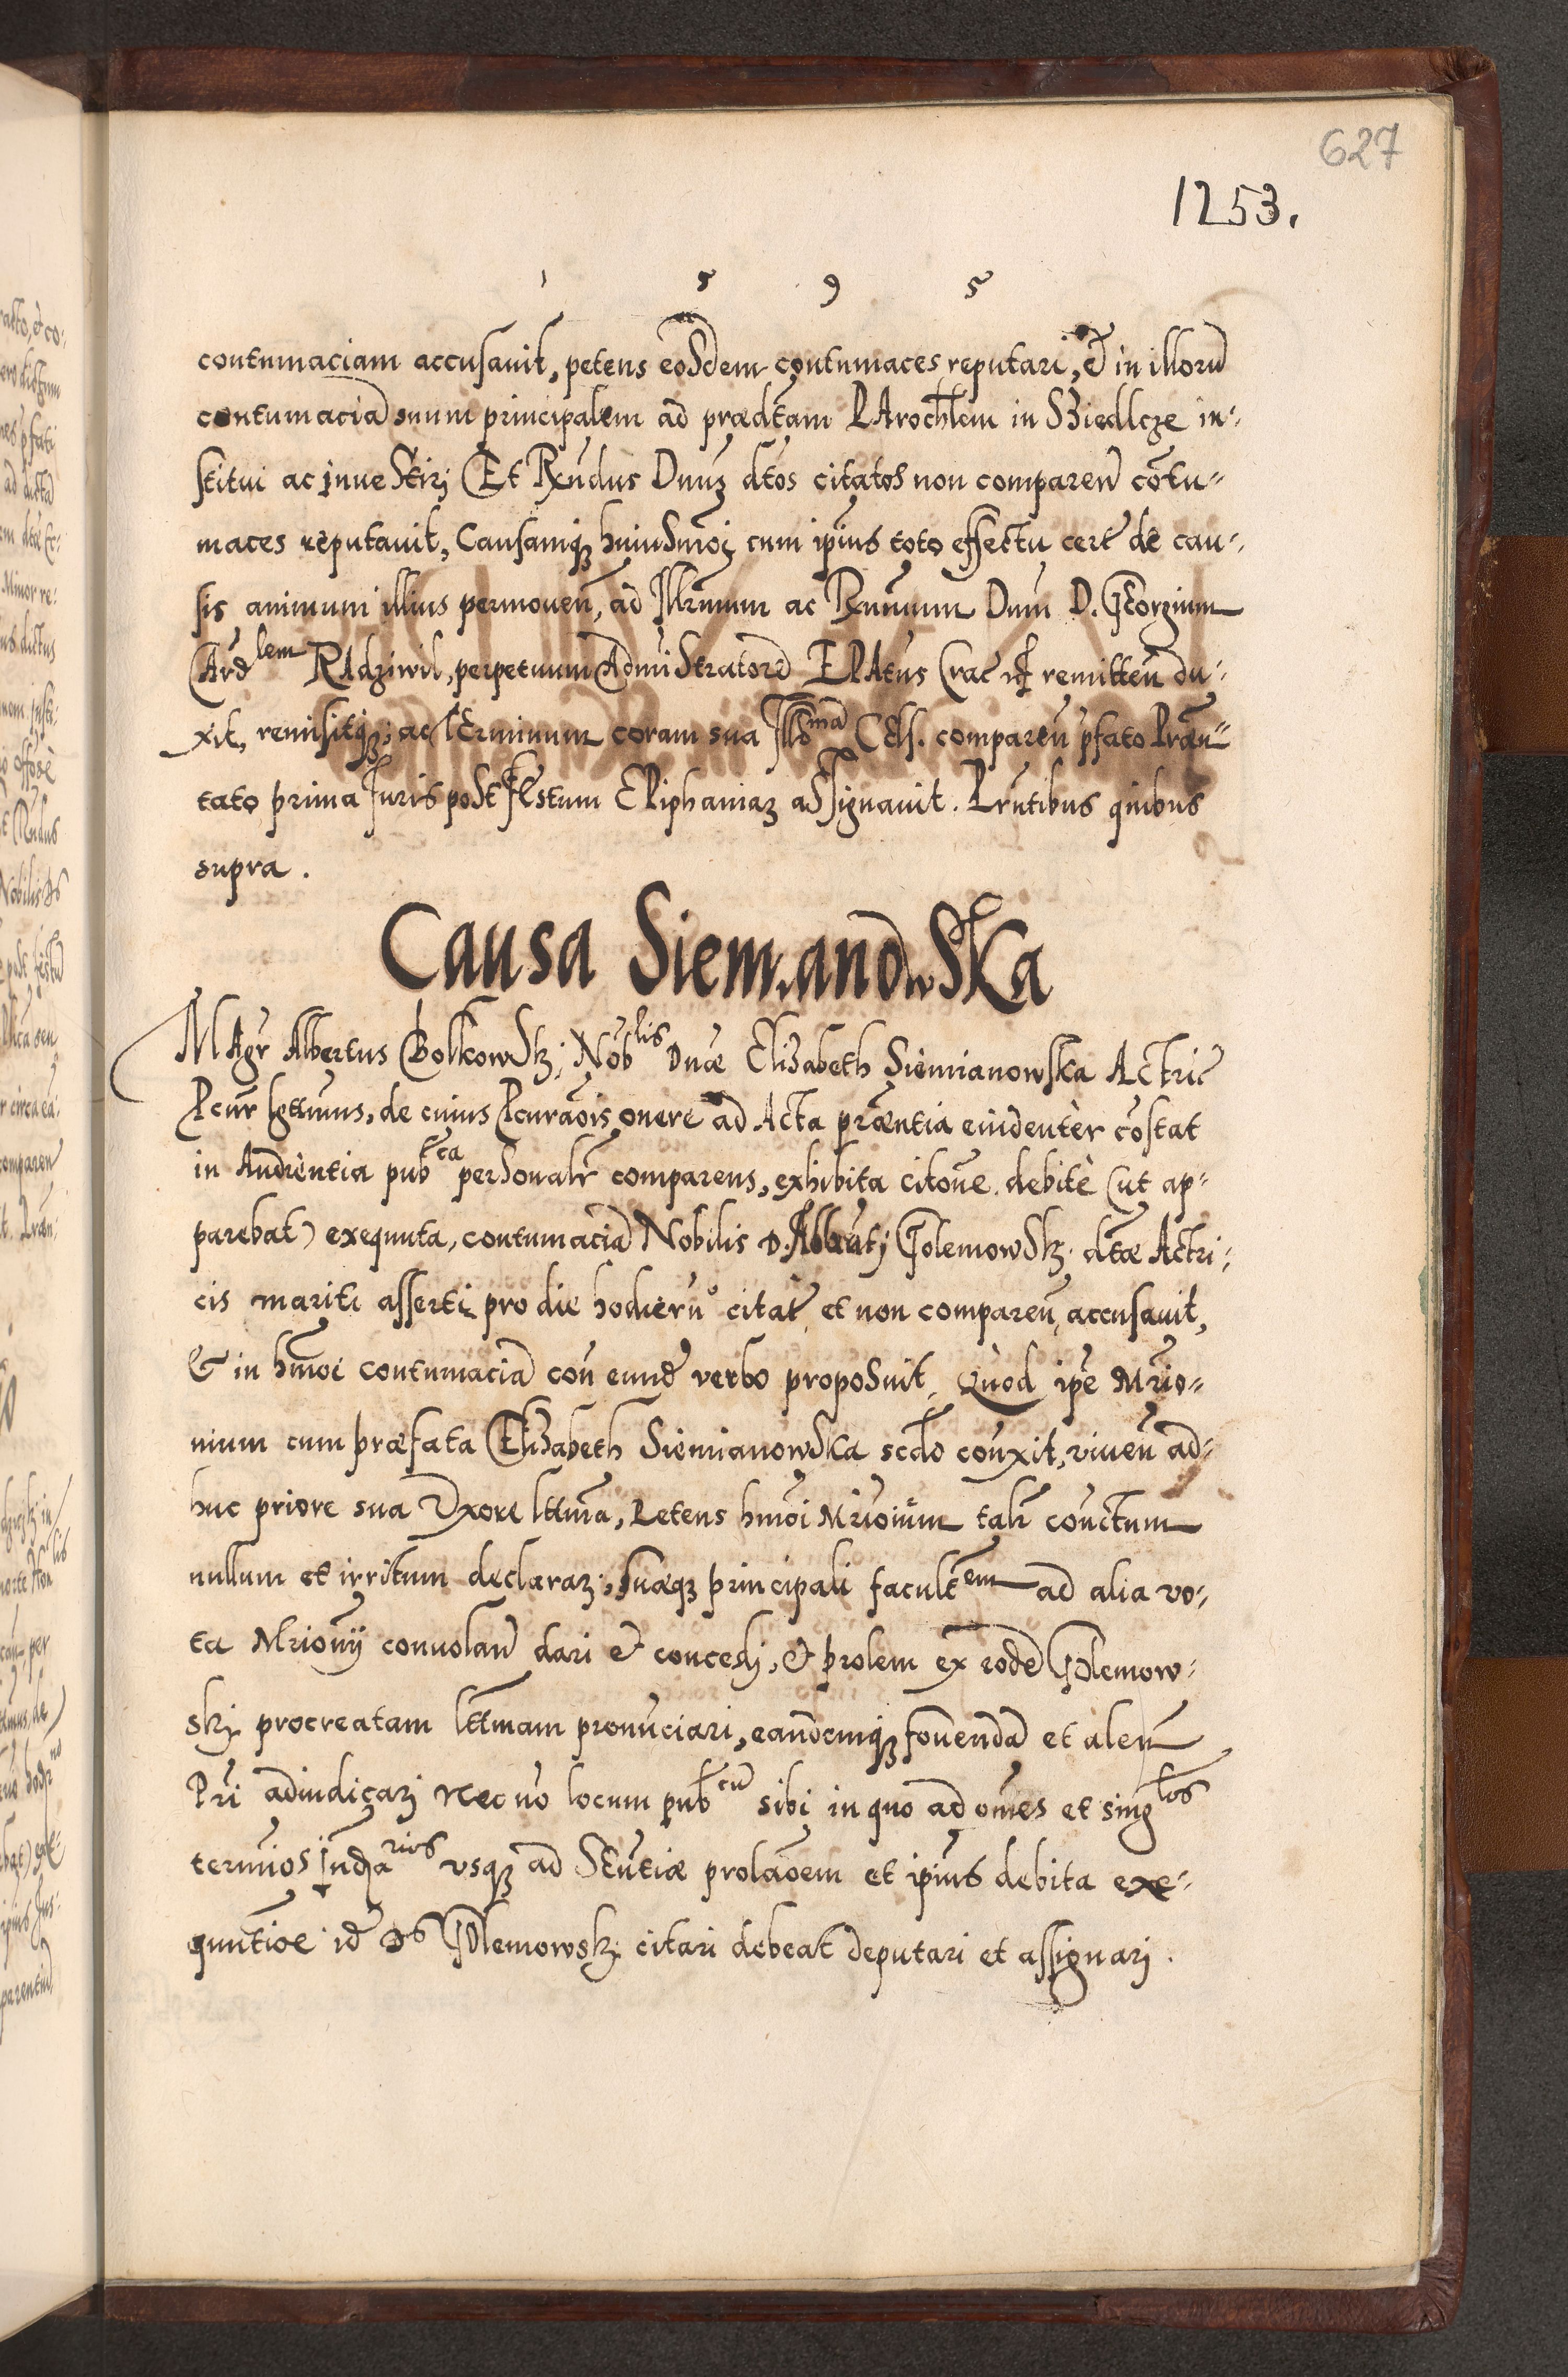 627
1253.
1 5 9 5
contumaciam accusavit, petens eosdem contumaces reputari, et in illorū
contumaciā suum principalem ad prædtam PArochlem in Biedlcze in-
stitui ac investirj Et Rxndus Dnus dtos citatos non comparen̄ cōtu-
maces reputavit, Causamq3 huiusmōi cum ipīus toto effectu certē de cau-
sis animum illius permoueñ, ad Illrmum ac Rxmmum Dnm D. GEorgium
CArdlem RAdziwil, perpetuum Admīstratorē EPAtus Crac remitteñ du-
xit, remisitq3; ac tErminum coram sua Illmā Cels. compareñ pfato Præn-
tato prima Juris post fEstum EPiphaniaȝ assignavit. Prñtibus quibus
supra.
Causa SiemianowSka
MAgr̄ Albertus BolkowSkj, Noblis Dnæ ElisabethSiemianowska Actric̄
Pcur̄ lgttimus, de cuius Pcurāōis onere ad Acta præntia euidenter cōstat
in Audientia pubca personalr̄ comparens, exhibita citōne debitè (ut ap-
parebat) exequuta, contumaciā Nobilis D. Alberti GolemowSkj dtæ Actri-
cis mariti asserti pro die hodiern° citat̄ et non compareñ accusavit,
& in hmōi contumaciā coñ eundē verbo proposuit, Quòd ipē Mrio-
nium cum præfata Elisabeth SiemianowSka scdo coñxit, viueñ ad-
huc priore sua Uxore lttīma, Petens hmōi Mrioīum talr̄ coñctum
nullum et irritum declararj, suæq3 principali facultem ad alia vo-
ta Mrioñij conuolan̄ dari et concedj, & prolem ex eodē GOlemow-
skj procreatam lttīmam pronūciari, eandemq3 fouendā et aleñ
Pri adiudicarj Nec nō locum pubcū sibi in quo ad omēs et singlos
termīos Iudʒarios vsq3 ad Stñtiæ prolāōem et ipīus debita exe-
quutiōe idē Ds GOlemowskj citari debeat deputari et assignarj.